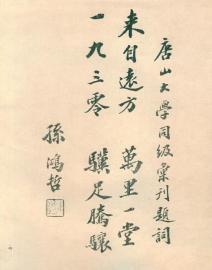 唐山大學同級彙刊題詞
來自遠方 萬里一堂
一九三零 驥足騰驤
孫鴻哲